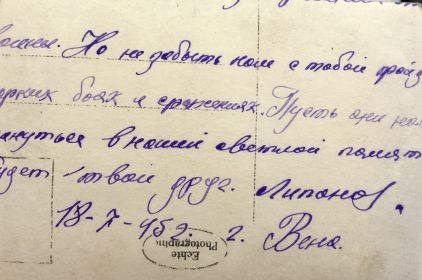 войны. Но не забыть нам с тобой пройд
боях и сражениях. Пусть они нам
януться в нашей светлой памят
удет твой друг. Липанов.
18-7-45г. г. Вена.
Echte
Photographie